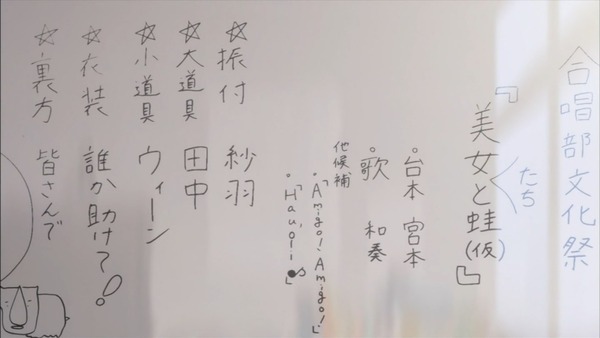 合唱部文化祭
たち
『美女と蛙(仮)』
・台本 宮本
・歌 和奏
他候補
・「Amigo! Amigo!」
・「Hau'oli
☆振付 紗羽
☆大道具 田中
☆小道具 ウィーン
☆衣装 誰か助けて!
☆裏方 皆さんで